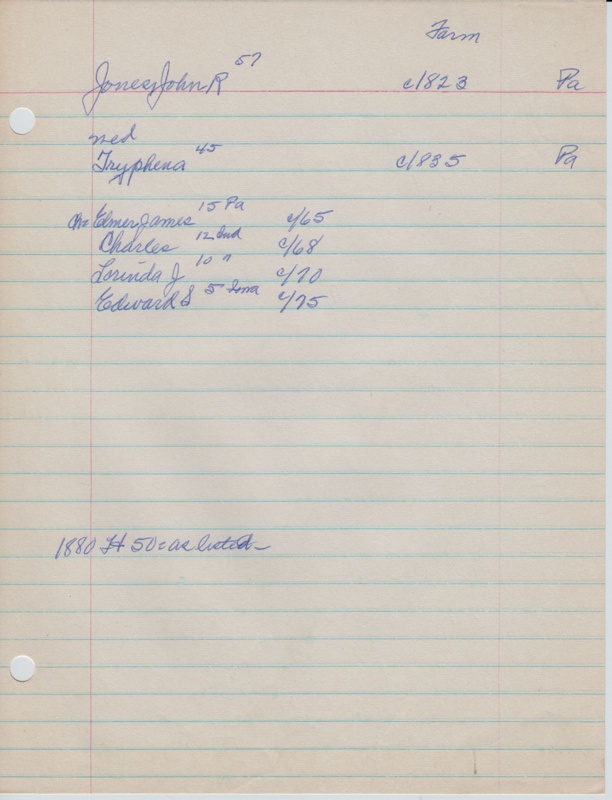 Farm
Jones, John R 57 c1823 Pa
med
Tryphena 45 c/1835 Pa
Ch= Elmer James 15 Pa c/65
Charles 12 Ind c/68
Lorinda J 10 " c/70
Edward S 5 Iowa c/75
1880 H 50 = as listed -